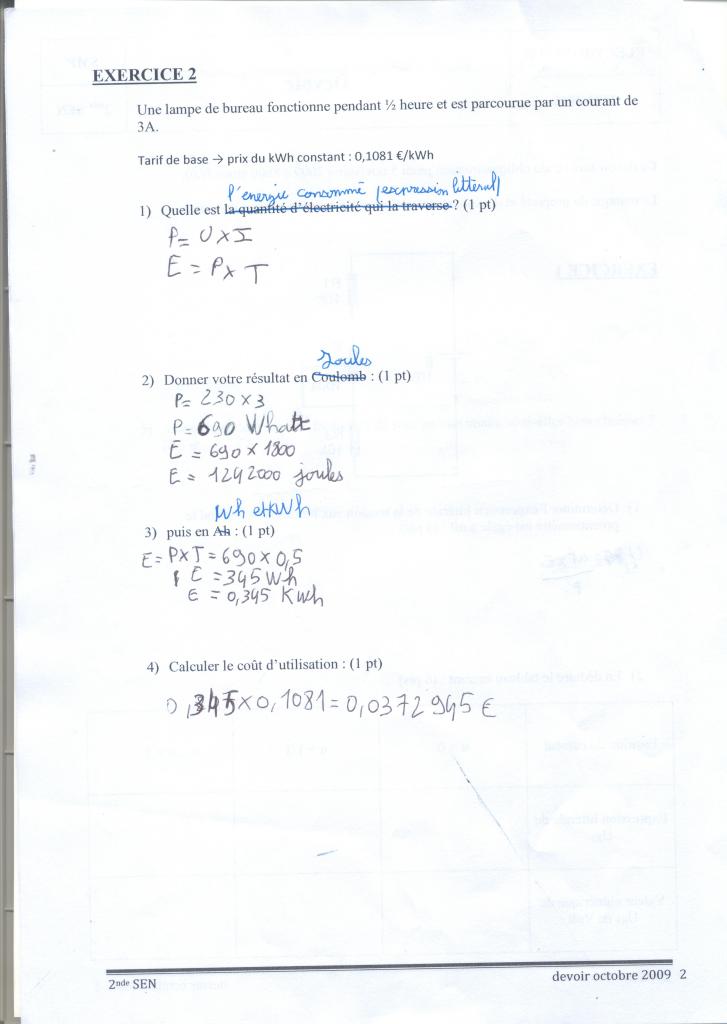 EXERCICE 2
Une lampe de bureau fonctionne pendant ½ heure et est parcourue par un courant de
3A.
Tarif de base → prix du kWh constant : 0,1081 €/kWh
l'énergie consommé (expression littéral)
1) Quelle est la quantité d'électricité qui la traverse ? (1 pt)
P = U x I
E = P x T
Joules
2) Donner votre résultat en Coulomb : (1 pt)
P = 230 x 3
P = 690 Whatt
E = 690 x 1800
E = 1242000 joules
Wh et kWh
3) puis en Ah : (1 pt)
E = P x T = 690 x 0,5
E = 345 Wh
E = 0,345 Kwh
4) Calculer le coût d'utilisation : (1 pt)
0,345 x 0,1081 = 0,0372945 €
2nde SEN
devoir octobre 2009 2